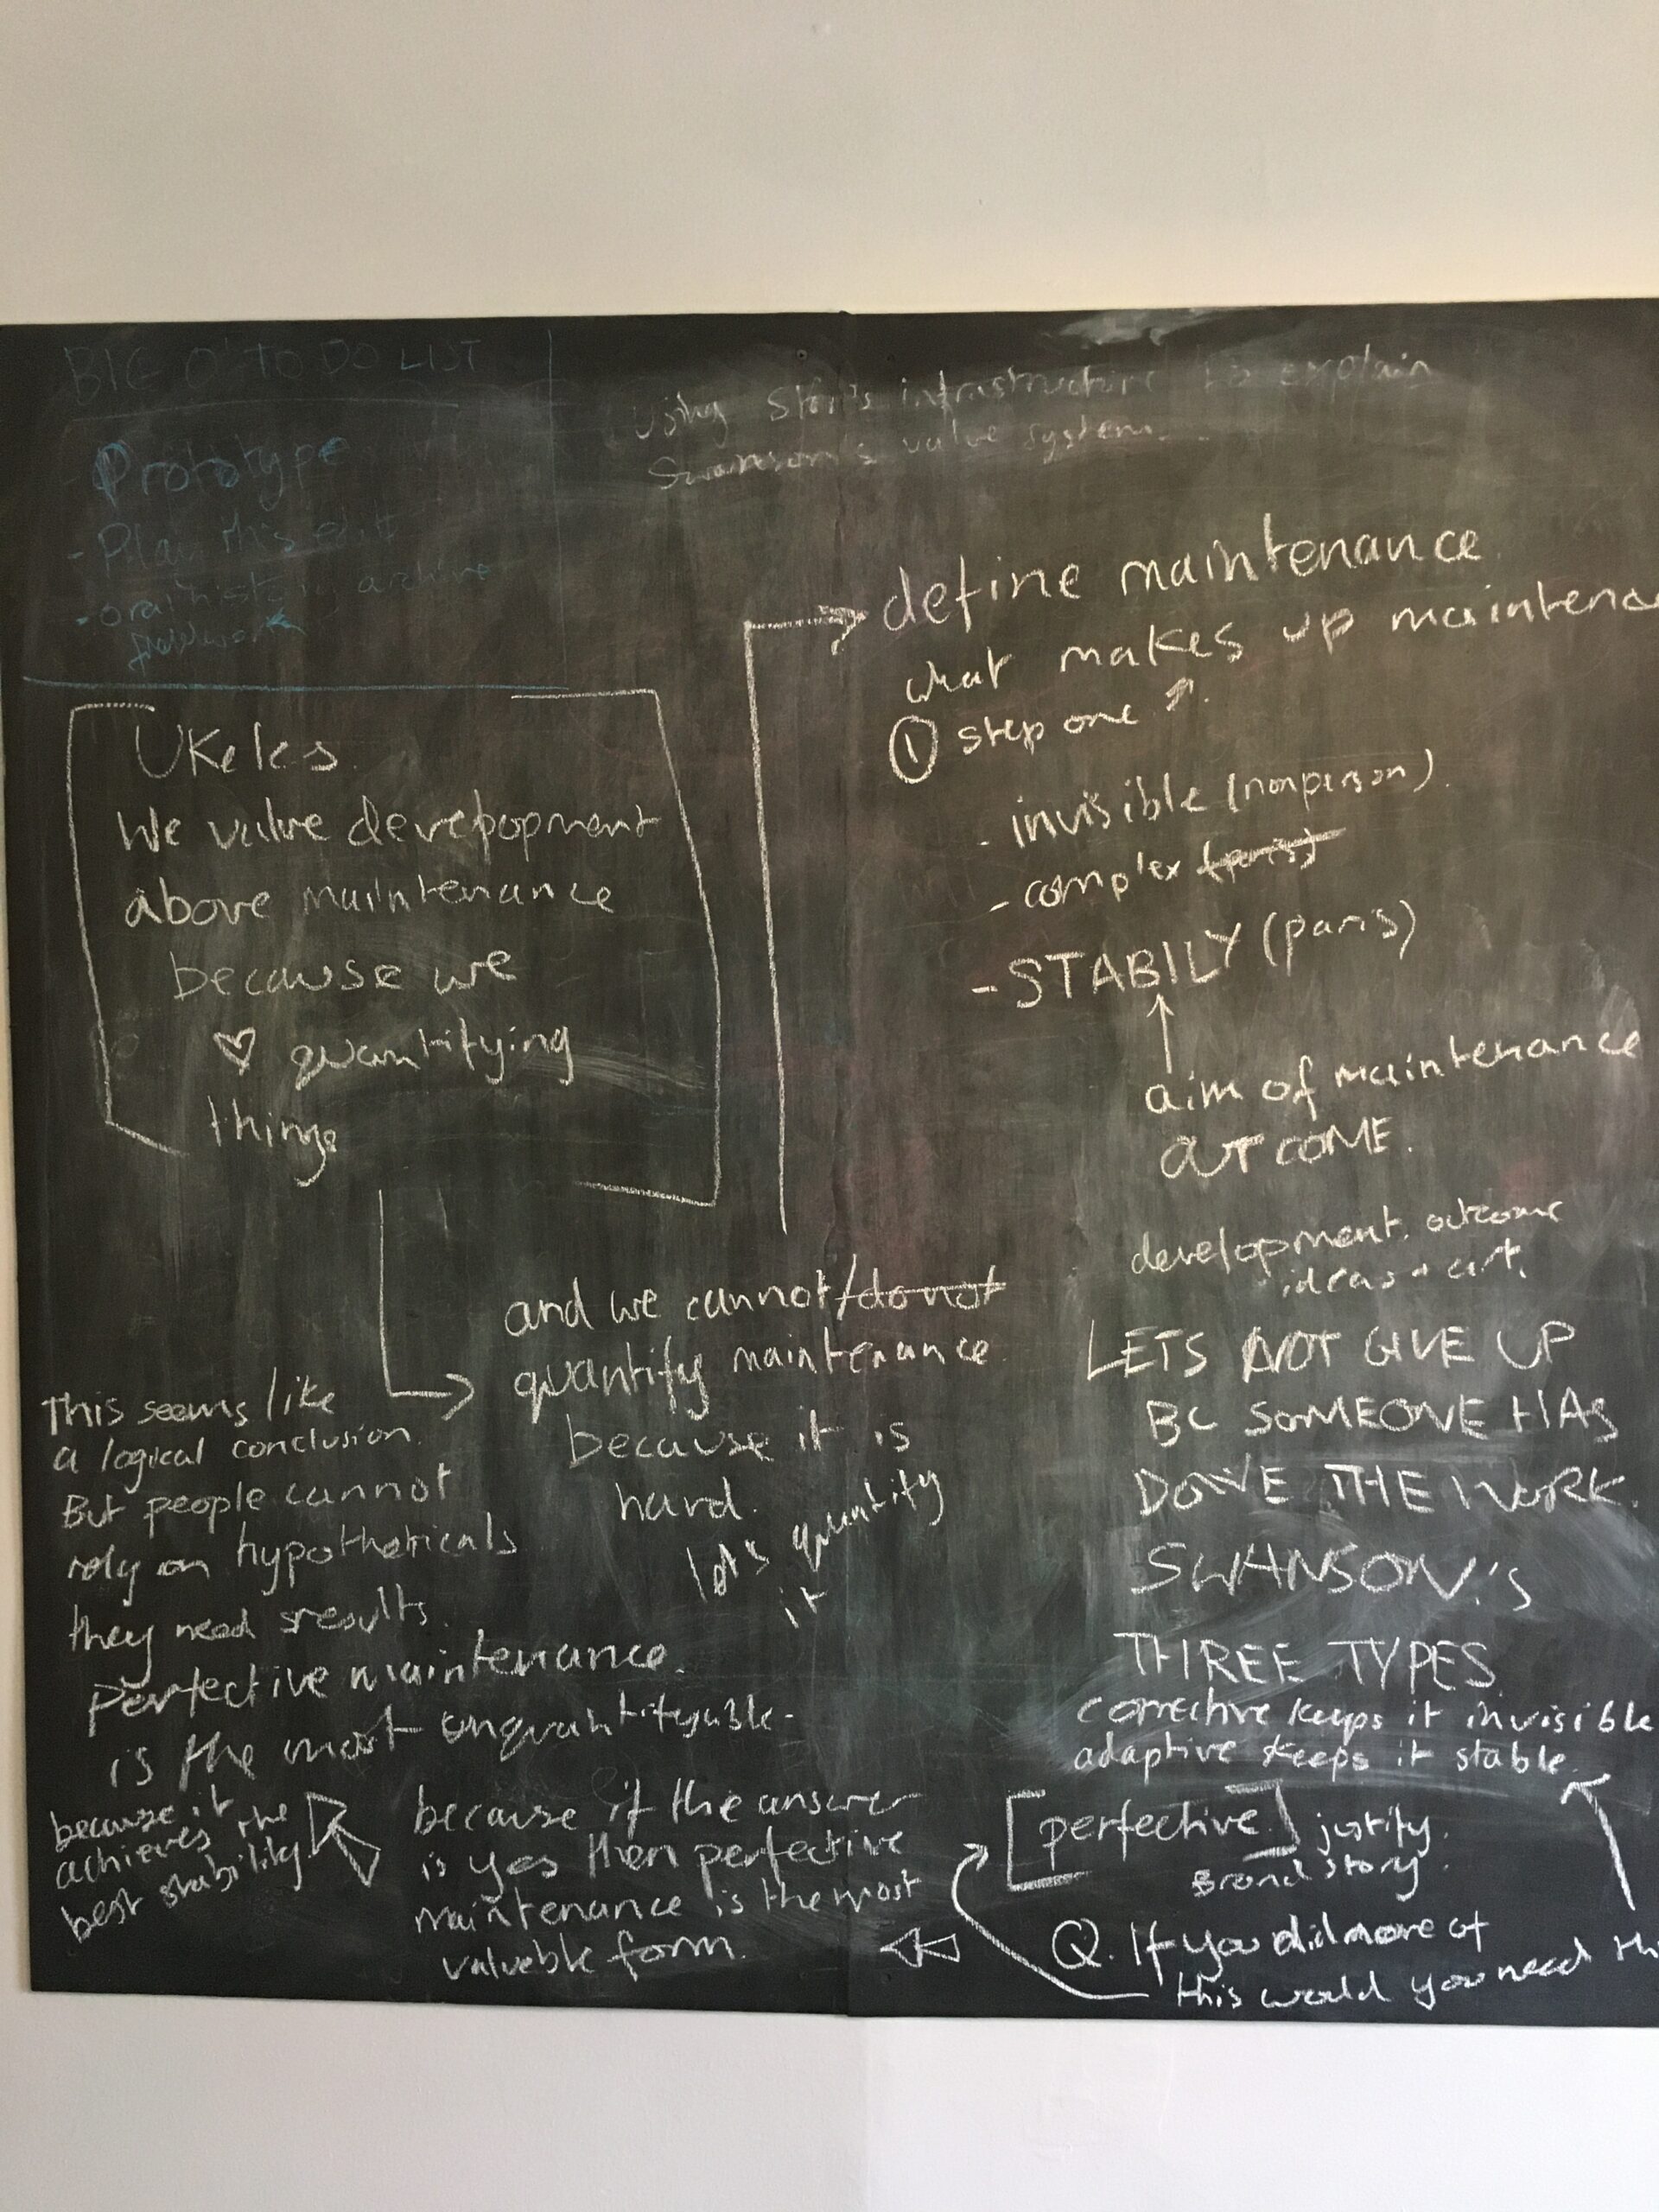 BIG O' TO DO LIST
- Prototype
- Plan this edit
- oral history archive
using Star's infrastructure to explain
Swanson's value system...
UKeles.
We value devepopment
above maintenance
because we
♡ quantifying
things
and we cannot/do not
quantify maintenance.
because it is
hard.
let's quantify
it
define maintenance
what makes up maintena
① step one
- invisible (nonperson).
- complex
- STABILY (paris)
aim of maintenance
OUTCOME.
development. outcome
ideas + art.
LETS NOT GIVE UP
BC SOMEONE HAS
DONE THE WORK.
SWANSON'S
THREE TYPES
corrective keeps it invisible
adaptive keeps it stable.
[perfective] justify.
story.
Q. If you did more of
this would you need th
because if the answer
is yes then perfective
maintenance is the most
valueble form.
This seems like
a logical conclusion.
But people cannot
rely on hypotheticals
they need results.
perfective maintenance.
is the most unquantifyable-
because it
achieves the
best stability.